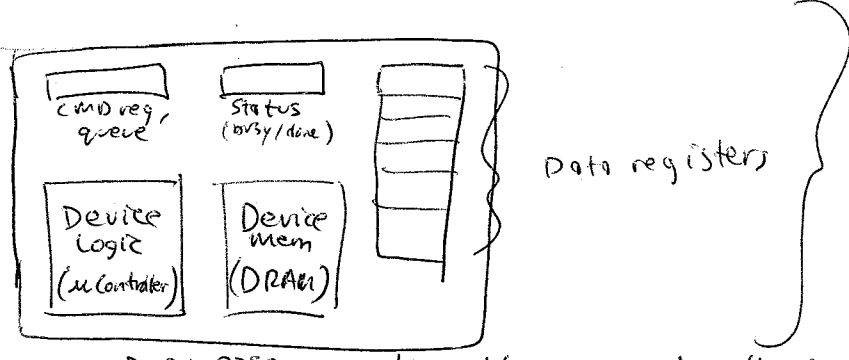 CMD reg,
queue
Status
(busy/done)
Data registers
Device
Logic
(μController)
Device
Mem
(DRAM)